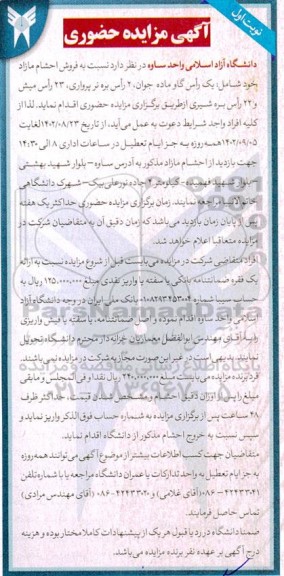 نوبت اول
آگهی مزایده حضوری
دانشگاه آزاد اسلامی واحد ساوه در نظر دارد نسبت به فروش احشام مازاد
بخود شامل: یک رأس گاو ماده جوان، ۲ رأس بره نر پرواری، ۲۳ رأس میش
و ۲۲ رأس بره شیری از طریق برگزاری مزایده حضوری اقدام نماید. لذا از
کلیه افراد واجد شرایط دعوت به عمل می‌آید، از تاریخ ۱۴۰۲/۰۸/۲۳ لغایت
۱۴۰۲/۰۹/۰۵ همه روزه به جز ایام تعطیل در ساعات اداری ۸ الی ۱۴:۳۰
جهت بازدید از احشام مازاد مذکور به آدرس ساوه – بلوار شهید بهشتی
– بلوار شهید فهمیده – کیلومتر ۴ جاده نورعلی بیک – شهرک دانشگاهی
خاتم الانبیاء مراجعه نمایند. زمان برگزاری مزایده حضوری حداکثر یک هفته
پس از پایان زمان بازدید می‌باشد که زمان دقیق آن به متقاضیان شرکت در
مزایده متعاقبا اعلام خواهد شد.
افراد متقاضی شرکت در مزایده می‌بایست قبل از شروع مزایده نسبت به ارائه
یک فقره ضمانتنامه بانکی یا سفته یا واریز نقدی مبلغ ۱۲۵,۰۰۰,۰۰۰ ریال به
حساب سیبا شماره بانک ملی ایران در وجه دانشگاه آزاد
اسلامی واحد ساوه اقدام نموده و اصل ضمانتنامه، یا سفته یا فیش واریزی
را به آقای مهندس ابوالفضل معماریان خزانه‌دار محترم دانشگاه تحویل
نمایند. بدیهی است در غیر این صورت مجاز به شرکت در مزایده نمی‌باشند.
فرد برنده مزایده می‌بایست مبلغ ریال نقدا و فی المجلس و مابقی
مبلغ را پس از اوزان دقیق احشام و مشخص شدن قیمت، حداکثر ظرف
۴۸ ساعت پس از برگزاری مزایده به شماره حساب فوق الذکر واریز نماید و
سپس نسبت به خروج احشام مذکور از دانشگاه اقدام نماید.
متقاضیان جهت کسب اطلاعات بیشتر از موضوع آگهی می‌توانند همه روزه
به جز ایام تعطیل به واحد تدارکات یا عمران دانشگاه مراجعه یا با شماره تلفن
۴۲۲۴۳۳۰۴۱–۰۸۶ (آقای غلامی) و ۴۲۲۴۳۳۰۲۰–۰۸۶ (آقای مهندس مرادی)
تماس حاصل فرمایند.
ضمنا دانشگاه در رد یا قبول هر یک از پیشنهادات کاملا مختار بوده و هزینه
درج آگهی بر عهده نفر برنده مزایده می‌باشد.